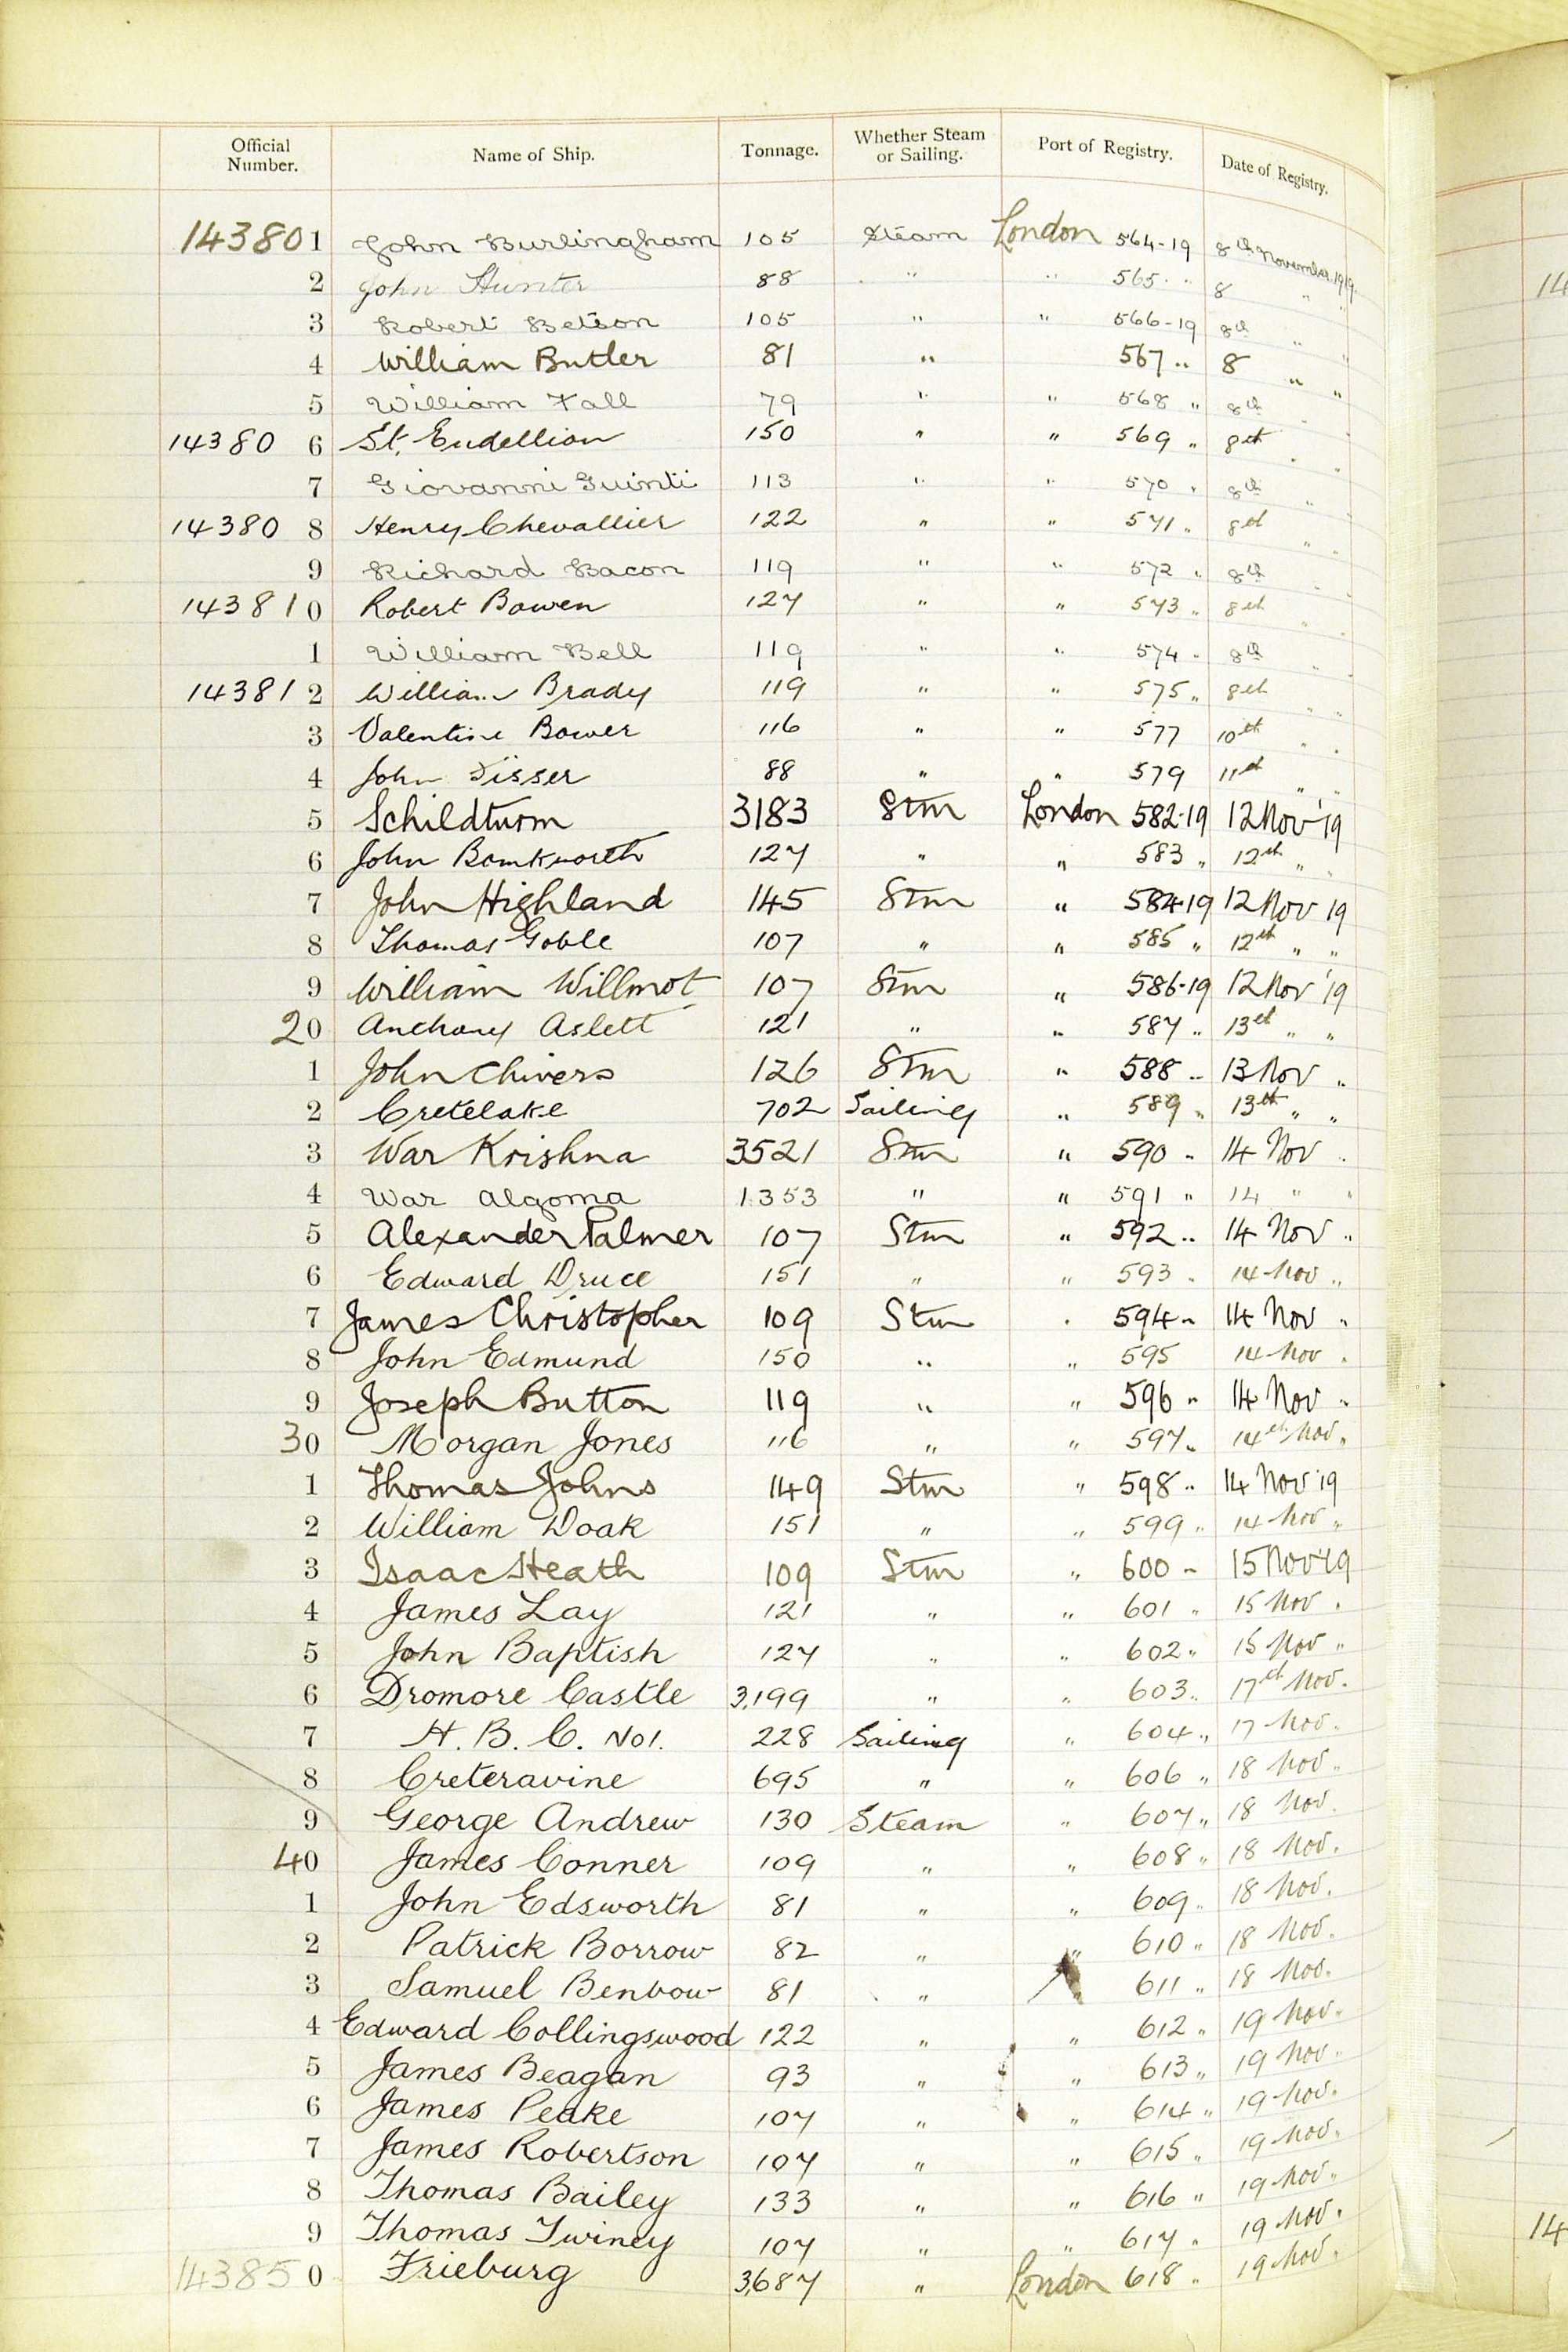 Official Number. Name of Ship. Tonnage. Whether Steam or Sailing. Port of Registry. Date of Registry.
143801 John Burlingham 105 Steam London 564-19 8th November 1919.
2 John Hunter 88 " " 565 " 8 " "
3 Robert Betson 105 " " 566-19 8th " "
4 William Butler 81 " 567 " 8 " "
5 William Fall 79 " " 568 " 8th " "
14380 6 St. Endellion 150 " " 569 " 8th " "
7 Giovanni Guinti 113 " " 570 " 8th " "
14380 8 Henry Chevallier 122 " " 571 " 8th " "
9 Richard Bacon 119 " " 572 " 8th " "
14381 0 Robert Bowen 127 " " 573 " 8th " "
1 William Bell 119 " " 574 " 8th " "
14381 2 William Brady 119 " " 575 " 8th " "
3 Valentine Bower 116 " " 577 10th " "
4 John 88 " " 579 11th " "
5 Schildturm 3183 Stm London 582-19 12 Nov '19
6 John 127 " " 583 " 12th " "
7 John Highland 145 Stm " 584-19 12 Nov 19
8 Thomas Goble 107 " " 585 " 12th " "
9 William Willmot 107 Stm " 586-19 12 Nov '19
20 Anthony Aslett 121 " " 587 " 13th " "
1 John Chivers 126 Stm " 588 " 13 Nov "
2 Cretelake 702 Sailing " 589 " 13th " "
3 War Krishna 3521 Stm " 590 " 14 Nov "
4 War Algoma 1353 " " 591 " 14 " "
5 Alexander Palmer 107 Stm " 592 " 14 Nov "
6 Edward Druce 151 " " 593 " 14 Nov "
7 James Christopher 109 Stm " 594 " 14 Nov "
8 John Edmund 150 " " 595 14 Nov "
9 Joseph Button 119 " " 596 " 14 Nov "
30 Morgan Jones 116 " " 597 " 14th Nov "
1 Thomas Johns 149 Stm " 598 " 14 Nov '19
2 William Doak 151 " " 599 " 14 Nov "
3 Isaac Heath 109 Stm " 600 " 15 Nov '19
4 James Lay 121 " " 601 " 15 Nov "
5 John Baptish 127 " " 602 " 15 Nov "
6 Dromore Castle 3,199 " " 603 " 17th Nov. "
7 H. B. C. No 1. 228 Sailing " 604 " 17 Nov. "
8 Creteravine 695 " " 606 " 18 Nov. "
9 George Andrew 130 Steam " 607 " 18 Nov.
40 James Conner 109 " " 608 " 18 Nov. "
1 John Edsworth 81 " " 609 " 18 Nov.
2 Patrick Borrow 82 " " 610 " 18 Nov. "
3 Samuel Benbow 81 " 611 " 18 Nov.
4 Edward Collingswood 122 " " 612 " 19 Nov. "
5 James Beagan 93 " " 613 " 19 Nov. "
6 James Peake 107 " " 614 " 19 Nov. "
7 James Robertson 107 " " 615 " 19 Nov. "
8 Thomas Bailey 133 " " 616 " 19 Nov. "
9 Thomas Twiney 107 " " 617 " 19 Nov. "
14385 0 Frieburg 3,687 " London 618 " 19 Nov. "
14
14